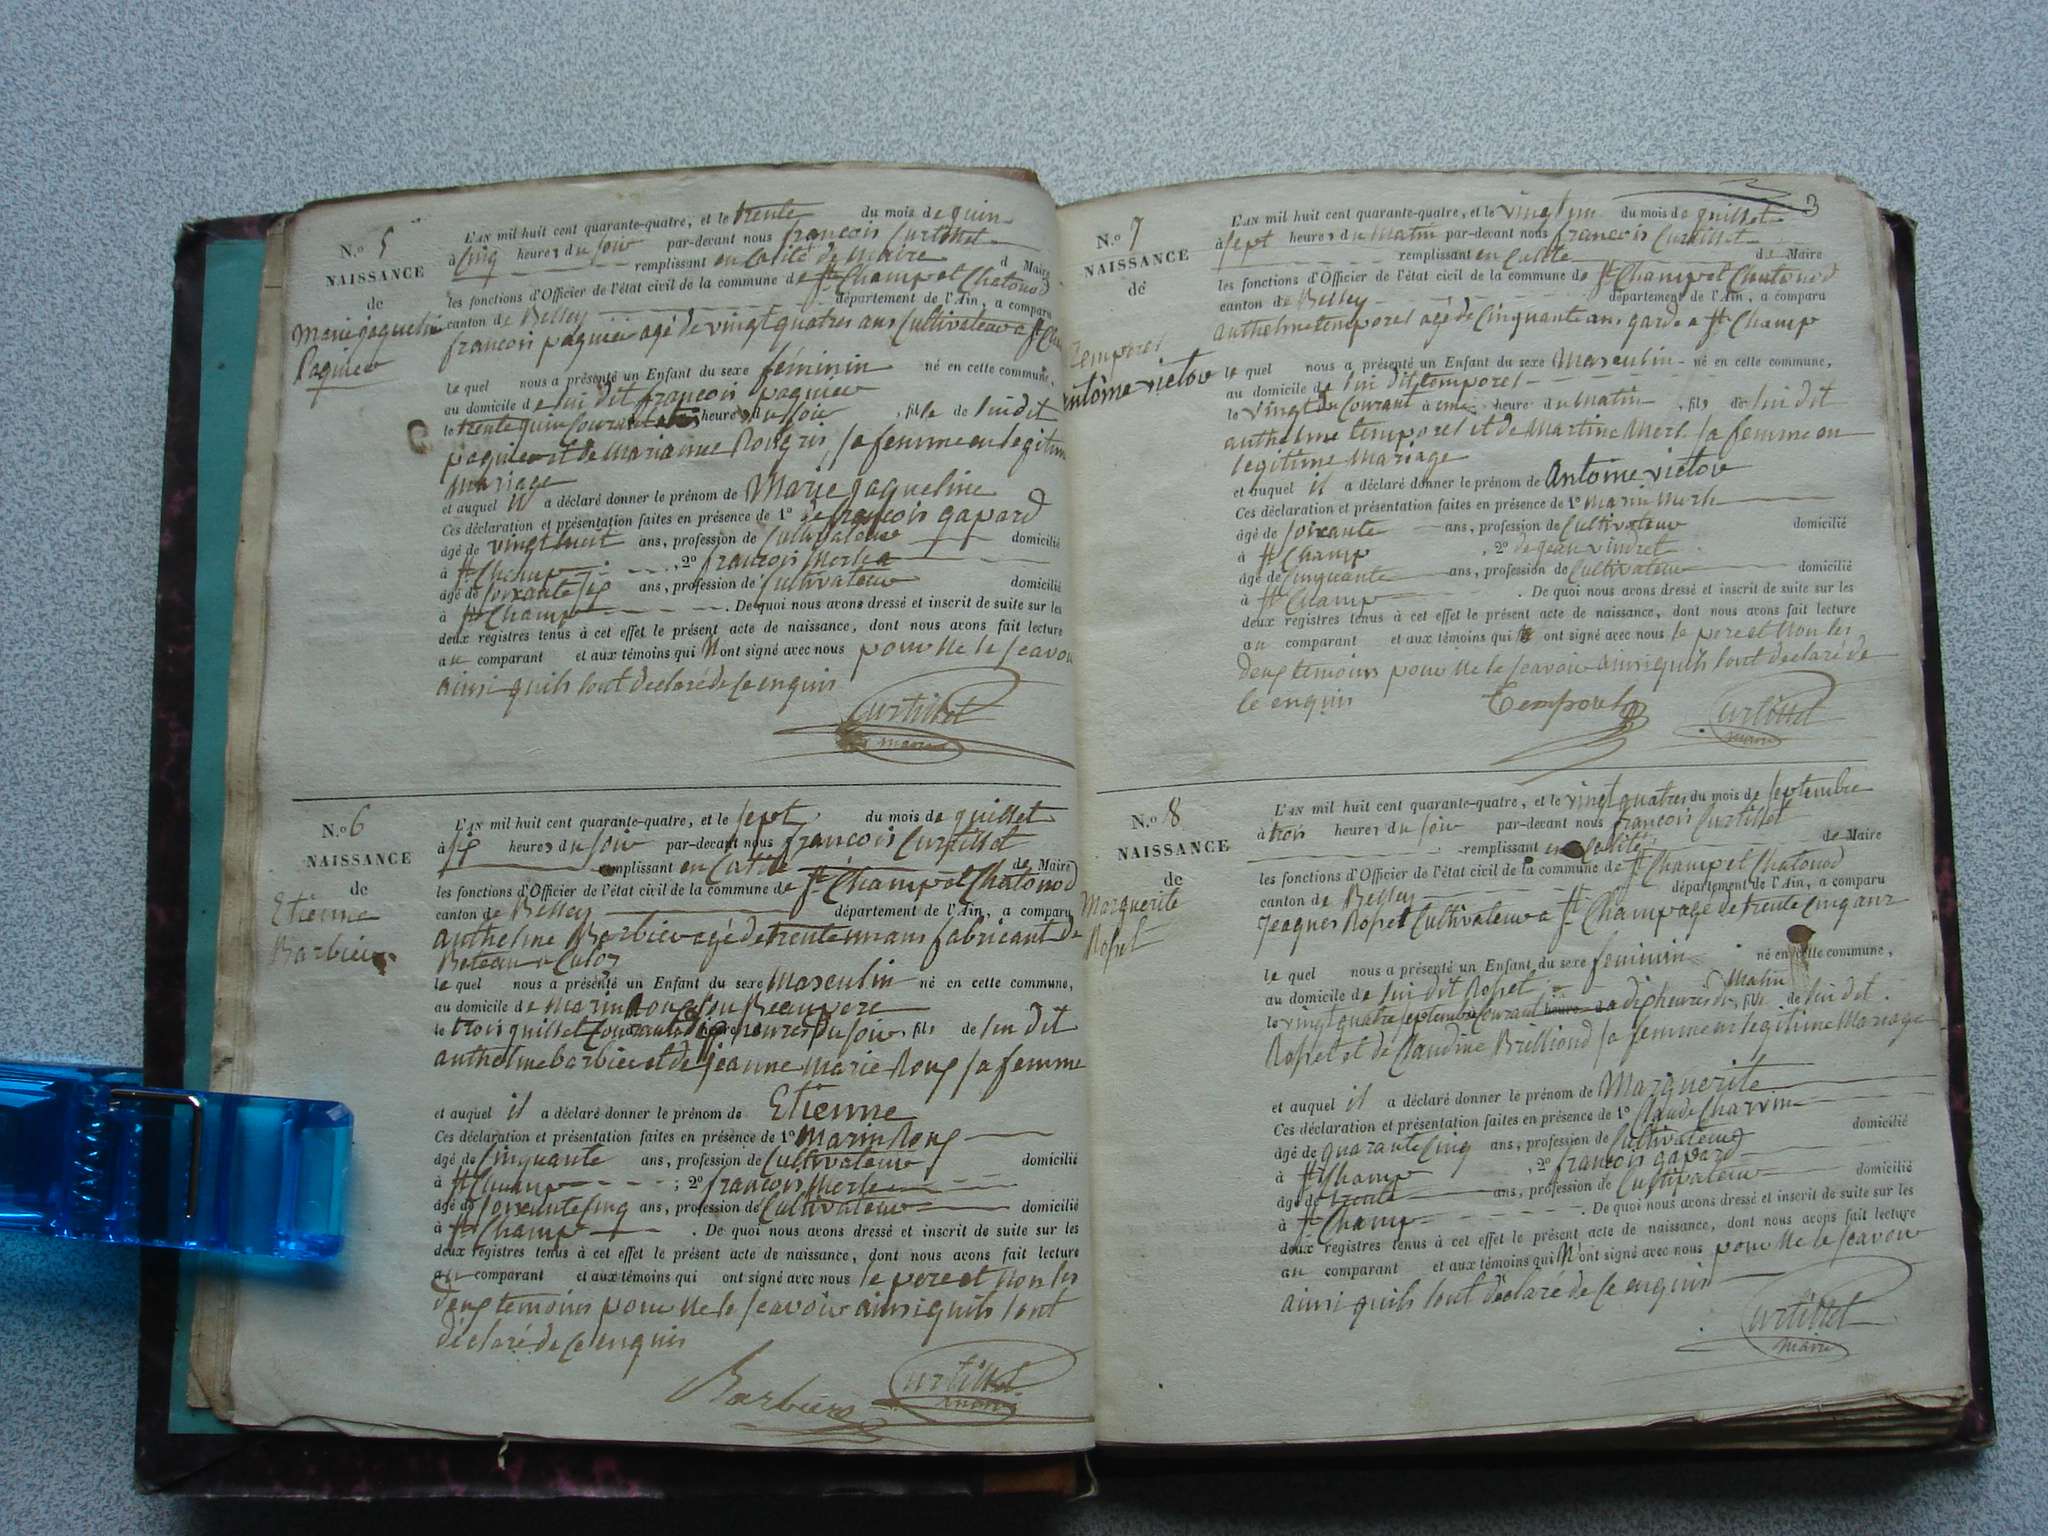 N.º 5
NAISSANCE
de
Marie jaqueline
Paquier
L'AN mil huit cent quarante-quatre, et le trente du mois de quin
à cinq heures du soir par-devant nous françois Curtillet
remplissant en calité de maire d Maire
les fonctions d'Officier de l'état civil de la commune de St Champ et Chatonod
canton de Belley département de l'Ain, a comparu
françois paquier agé de vingt quatres ans Cultivateur a St Champ
le quel nous a présenté un Enfant du sexe féminin né en cette commune,
au domicile de lui dit françois paquier
le trente quin Courant heure du soir , fille de lui dit
paquier et de marianne Rougris, sa femme en legitime
mariage
et auquel il a déclaré donner le prénom de Marie jaqueline
Ces déclaration et présentation faites en présence de 1º de françois gapard
âgé de vingt huit ans, profession de Cultivateur domicilié
à St Champ , 2º françois Merle
âgé de soixante six ans, profession de Cultivateur domicilié
à St Champ . De quoi nous avons dressé et inscrit de suite sur les
deux registres tenus à cet effet le présent acte de naissance, dont nous avons fait lecture
au comparant et aux témoins qui N'ont signé avec nous pour ne le scavoir
ainsi quils lont declaré de ce enquis
Curtillet
maire
N.º 6
NAISSANCE
de
Etienne
Barbier
L'AN mil huit cent quarante-quatre, et le sept du mois de quillet
à six heures du soir par-devant nous françois Curtillet
remplissant en Calité de Maire
les fonctions d'Officier de l'état civil de la commune de St Champ et Chatonod
canton de Belley département de l'Ain, a comparu
anthelme Barbier agé de trente un ans fabricant de
Bateau a Culoz
le quel nous a présenté un Enfant du sexe Masculin né en cette commune,
au domicile de marin Roux son Beaupere
le trois quillet Courant a dix heures du soir , fils de lui dit
anthelme barbier et de jeanne marie Roux sa femme
et auquel il a déclaré donner le prénom de Etienne
Ces déclaration et présentation faites en présence de 1º Marin Roux
âgé de Cinquante ans, profession de Cultivateur domicilié
à St Champ ; 2º françois Merle
âgé de soixante Cinq ans, profession de Cultivateur domicilié
à St Champ . De quoi nous avons dressé et inscrit de suite sur les
deux registres tenus à cet effet le présent acte de naissance, dont nous avons fait lecture
au comparant et aux témoins qui ont signé avec nous le pere et Non les
deux temoins pour ne le scavoir ainsi quils lont
déclaré de ce enquis
Barbier
Curtillet
maire
3
N.º 7
NAISSANCE
de
Temporel
antoine victor
L'AN mil huit cent quarante-quatre, et le vingt un du mois de quillet
à sept heures du matin par-devant nous françois Curtillet
remplissant en Calité de Maire
les fonctions d'Officier de l'état civil de la commune de St Champ et Chatonod
canton de Belley département de l'Ain, a comparu
anthelme temporel agé de Cinquante ans garde a St Champ
le quel nous a présenté un Enfant du sexe Masculin né en cette commune,
au domicile de lui dit temporel
le vingt du Courant à une heure du matin , fils de lui dit
anthelme temporel et de Martine Merle sa femme en
legitime mariage
et auquel il a déclaré donner le prénom de antoine victor
Ces déclaration et présentation faites en présence de 1º marin Merle
âgé de soixante ans, profession de Cultivateur domicilié
à St Champ , 2º de jean vindret
âgé de Cinquante ans, profession de Cultivateur domicilié
à St Champ . De quoi nous avons dressé et inscrit de suite sur les
deux registres tenus à cet effet le présent acte de naissance, dont nous avons fait lecture
au comparant et aux témoins qui ont signé avec nous le pere et Non les
deux temoins pour ne le scavoir ainsi quils lont declaré de
ce enquis
Temporel
Curtillet
maire
N.º 8
NAISSANCE
de
Marguerite
Rosset
L'AN mil huit cent quarante-quatre, et le vingt quatres du mois de septembre
à trois heures du soir par-devant nous françois Curtillet
remplissant en Calité de Maire
les fonctions d'Officier de l'état civil de la commune de St Champ et Chatonod
canton de Belley département de l'Ain, a comparu
Jeaques Rosset Cultivateur a St Champ agé de trente Cinq ans
le quel nous a présenté un Enfant du sexe feminin né en cette commune,
au domicile de lui dit Rosset
le vingt quatre septembre Courant heure d a dix heures du Matin , fille de lui dit
Rosset et de Claudine Brilliond sa femme en legitime Mariage
et auquel il a déclaré donner le prénom de Marguerite
Ces déclaration et présentation faites en présence de 1º Claude Charvin
âgé de quarante Cinq ans, profession de Cultivateur domicilié
à St Champ , 2º françois gapard
âgé de trente ans, profession de Cultivateur domicilié
à St Champ . De quoi nous avons dressé et inscrit de suite sur les
deux registres tenus à cet effet le présent acte de naissance, dont nous avons fait lecture
au comparant et aux témoins qui N'ont signé avec nous pour ne le scavoir
ainsi quils lont déclaré de ce enquis
Curtillet
maire